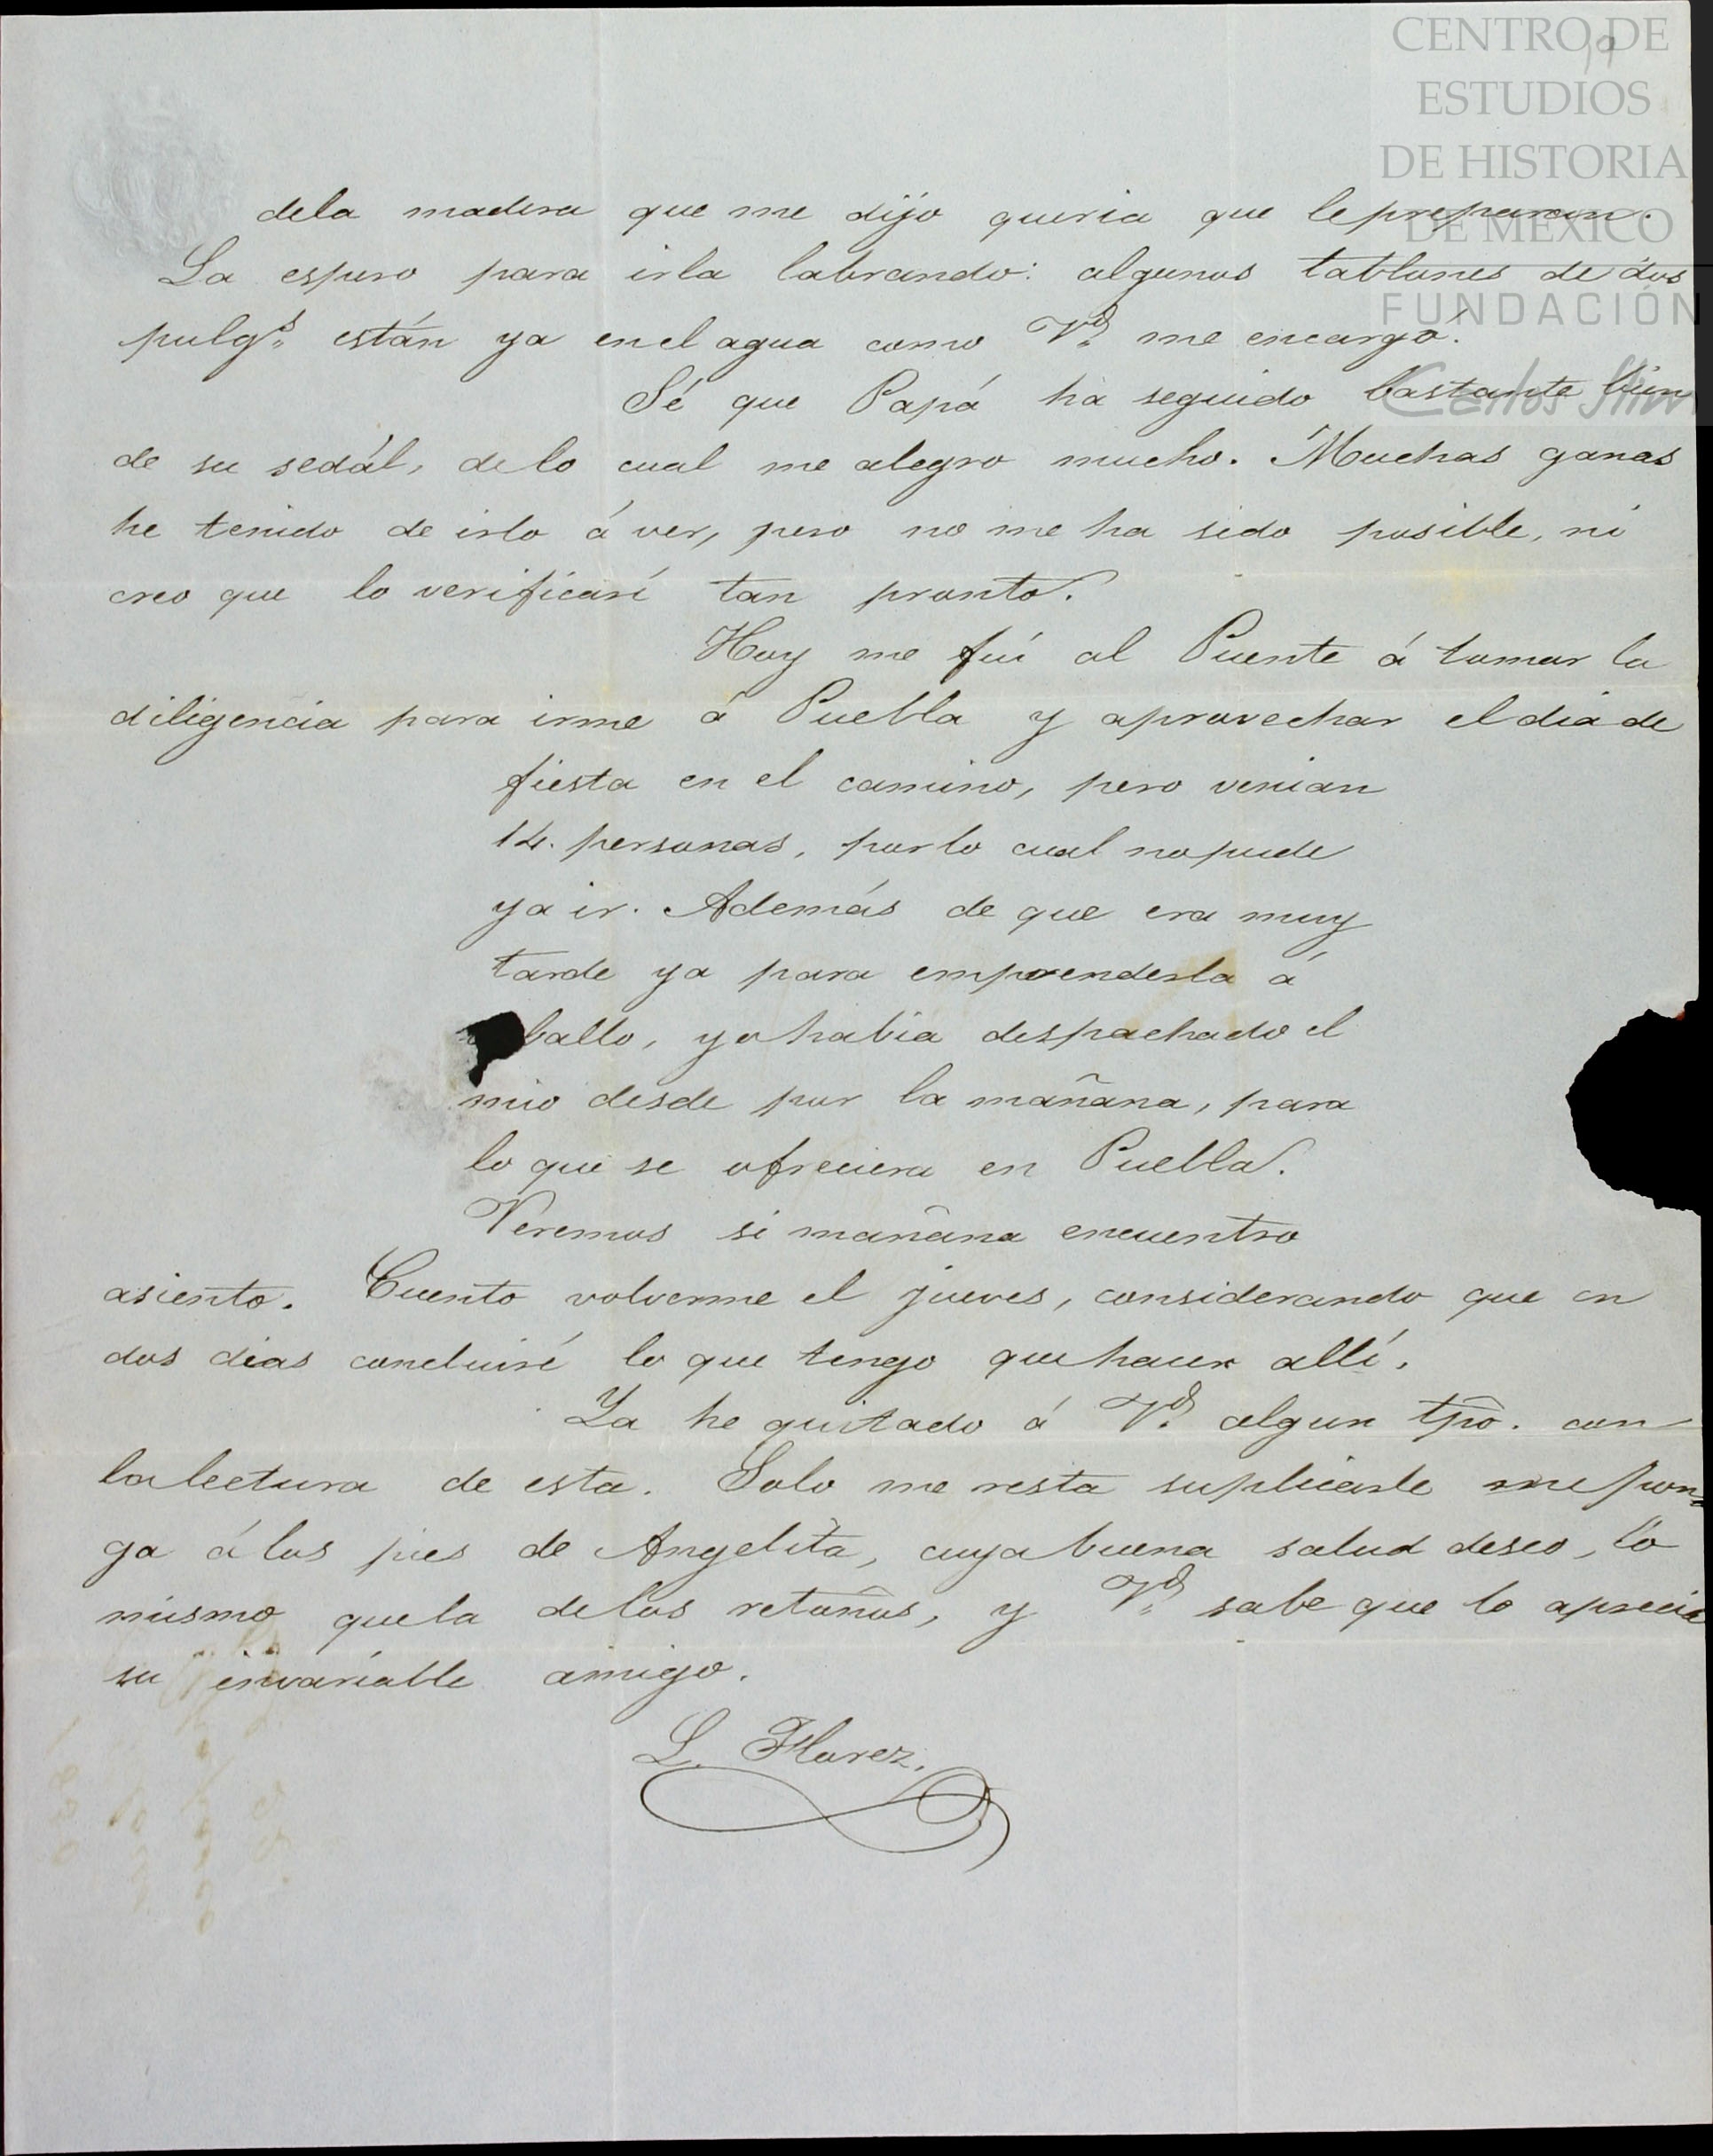 CENTRO DE
ESTUDIOS
DE HISTORIA
DE MÉXICO
FUNDACIÓN
Carlos Slim
19
dela madera que me dijo queria que le preparara.
La espero para irla labrando: algunos tablones de dos
pulgs. están ya en el agua como Vd. me encargó.
Sé que Papá ha seguido bastante bien
de su sedál, de lo cual me alegro mucho. Muchas ganas
he tenido de irlo á ver, pero no me ha sido posible, ni
creo que lo verificaré tan pronto.
Hoy me fuí al Puente á tomar la
diligencia para irme á Puebla y aprovechar el dia de
fiesta en el camino, pero venian
14. personas, por lo cual no pude
ya ir. Además de que era muy
tarde ya para emprenderla á
ballo, yo habia despachado el
mio desde por la mañana, para
lo que se ofreciera en Puebla.
Veremos si mañana encuentro
asiento. Cuento volverme el jueves, considerando que en
dos dias concluiré lo que tengo que hacer allí.
Ya he quitado á Vd. algun tpo. con
la lectura de esta. Solo me resta suplicarle me pon-
ga á los pies de Angelita, cuya buena salud deseo, lo
mismo que la de los retoños, y Vd. sabe que lo aprecia
su invariable amigo.
L. Florez.